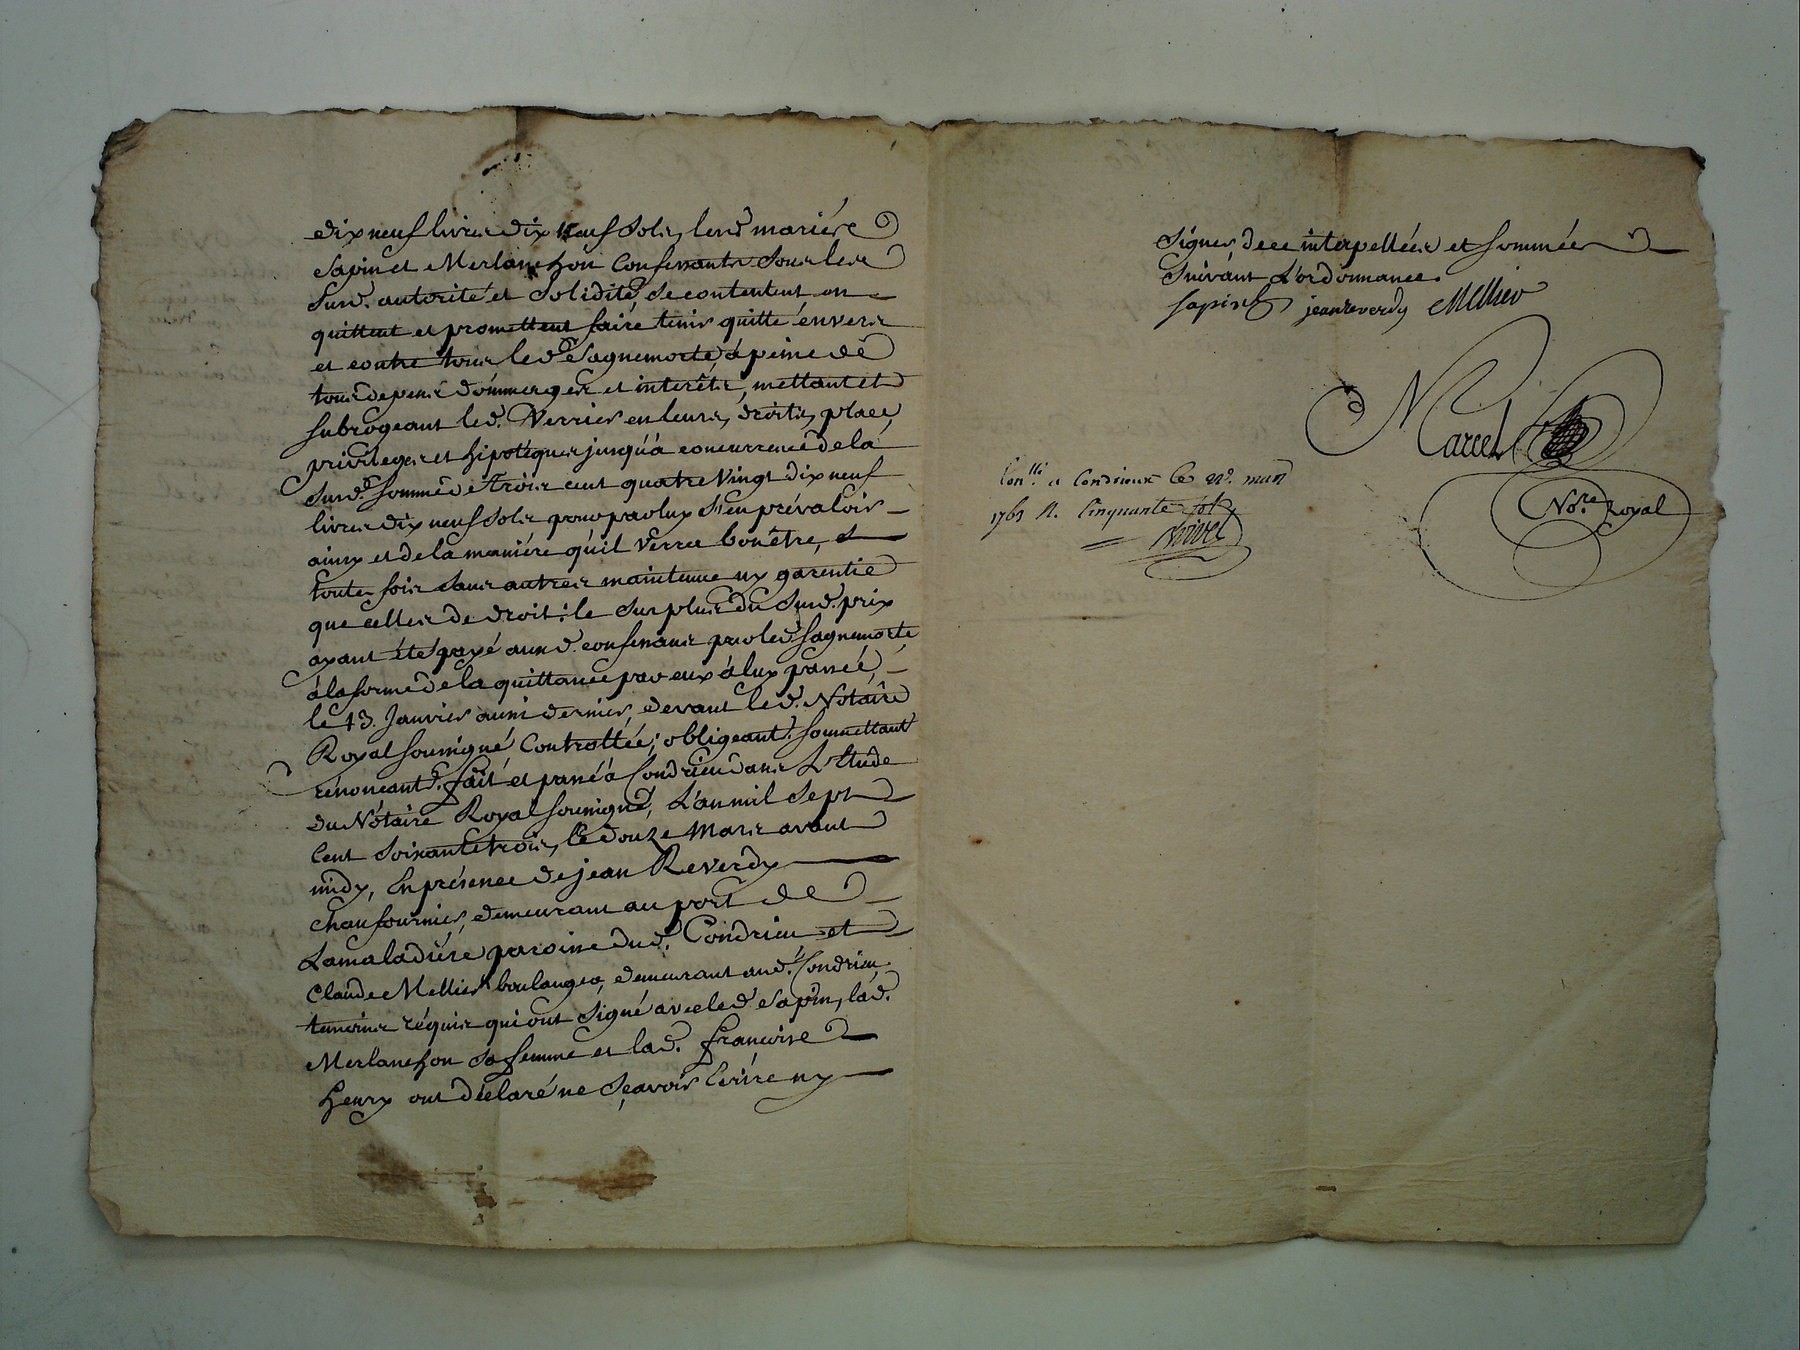 dix neuf livres dix neuf sols, lesd mariés
Sapin et Merlanchon confessants sous lesd
susd. autorité et solidité, se contentent en
quittent et promettent faire tenir quitte envers
et contre tous led Sagnemorte, á peine de
tous depens dommages et interêts, mettant et
subrogeant led. Verrier en leurs, droits, place,
privileges et hipotéques jusqu'á concurrence de la
susd. somme de trois cent quatre vingt dix neuf
livres dix neuf sols pour par luy s'en prévaloir
ainsy et de la maniére qu'il verra bon être,
toutes fois sans autres maintenue ny garentie
que celles de droit: le surplus du susd. prix
ayant été payé ausd. confessans par led Sagnemorte
á la forme de la quittance par eux á luy passée,
le 13. Janvier aussi dernier, devant led. Notaire
Royal soussigné Controllée; obligeant. soumettant
renonceant. fait et passé á Condrieu dans L'Etude
du Nótaire Royal soussigné, L'an mil sept
cent soixante trois, le douze Mars avant
midy, En présence de jean Reverdy
chaufournier, demeurant au port de
Lamaladiére paroisse dud. Condrieu et
Claude Mellier boulanger, demeurant aud. Condrieu
temoins réquis qui ont signé avec led Sapin, lad.
Merlanchon sa femme et lad. françoise
henry ont déclaré ne sçavoir Ecrire ny
Signer, de ce interpellées et sommées
Suivant L'ordonnance.
Sapin jean reverdy Mellier
Marcel
No.re Royal
Con.llé a Condrieux le 22. mars
1763 R. Cinquante sols